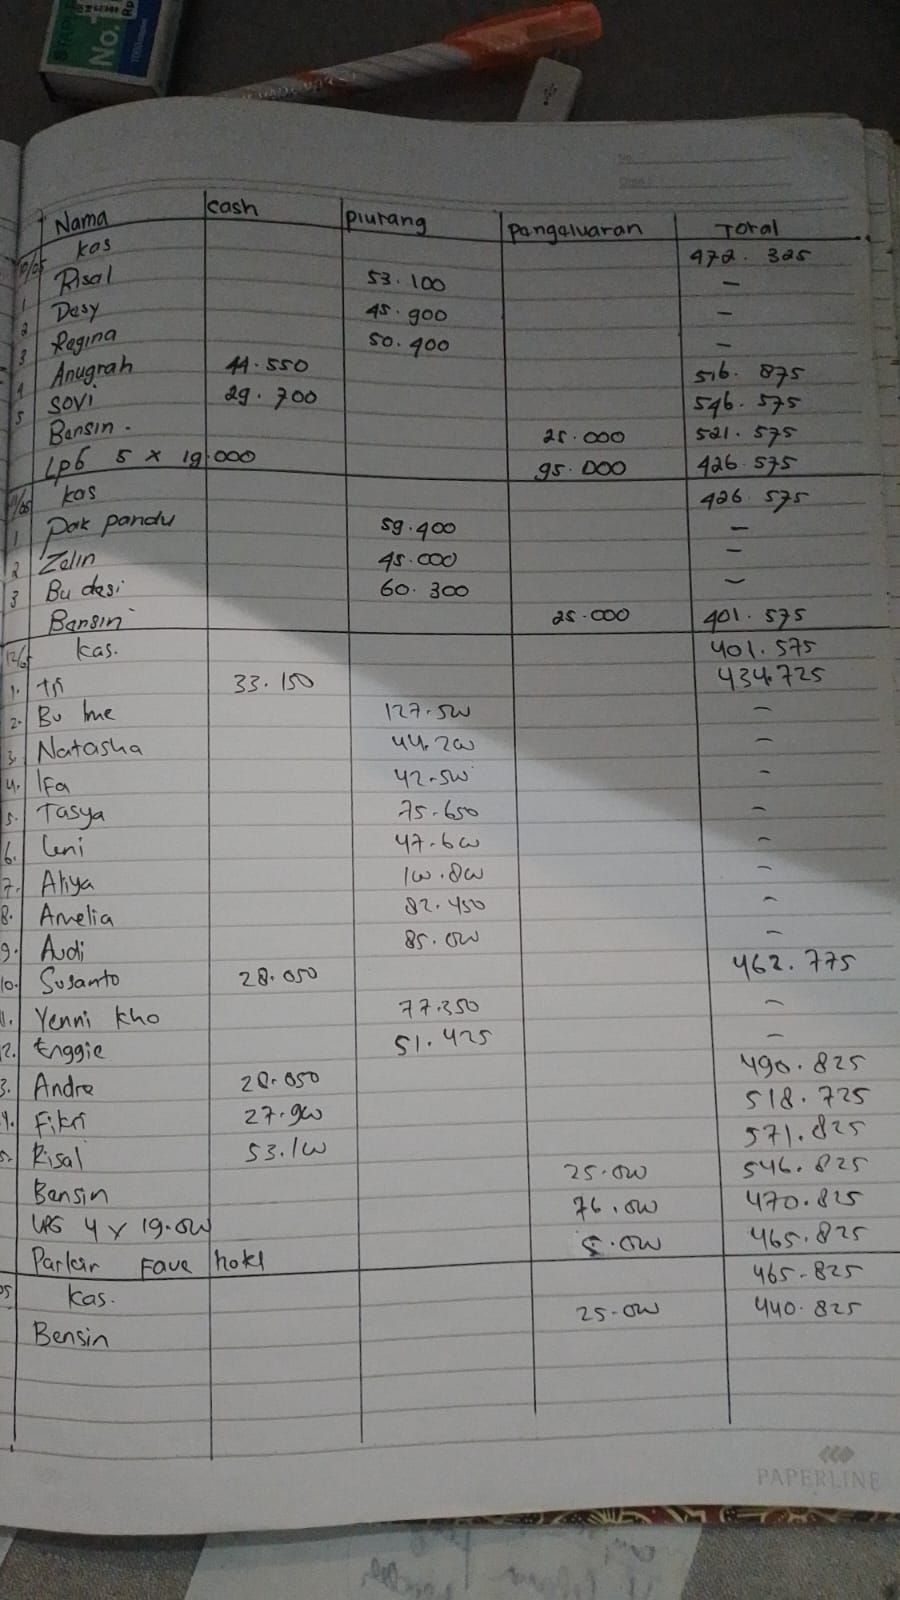 No. 1
No.
Date
Nama cash piurang pangaluaran Total
10/05 kas 472.325
1 Risal 53.100 —
2 Desy 45.900 —
3 Regina 50.400 —
4 Anugrah 44.550 516.875
5 SOVI 29.700 546.575
Bensin. 25.000 521.575
LPG 5 x 19.000 95.000 426.575
11/05 kas 426.575
1 Pak pandu 59.400 —
2 Zelin 45.000 —
3 Bu desi 60.300 —
Bensin 25.000 401.575
12/5 kas. 401.575
1. Tri 33.150 434.725
2. Bu Ime 127.500 —
3. Natasha 44.200 —
4. Ifa 42.500 —
5. Tasya 75.650 —
6. Leni 47.600 —
7. Aliya 100.800 —
8. Amelia 82.450 —
9. Audi 85.000 —
10. Susanto 28.050 462.775
11. Yenni kho 77.350 —
12. Enggie 51.425 —
3. Andre 28.050 490.825
4. Fikri 27.900 518.725
5. Risal 53.100 571.825
Bensin 25.000 546.825
LPG 4 x 19.000 76.000 470.825
Parkir Fave hotel 5.000 465.825
05 kas. 465.825
Bensin 25.000 440.825
PAPERLINE